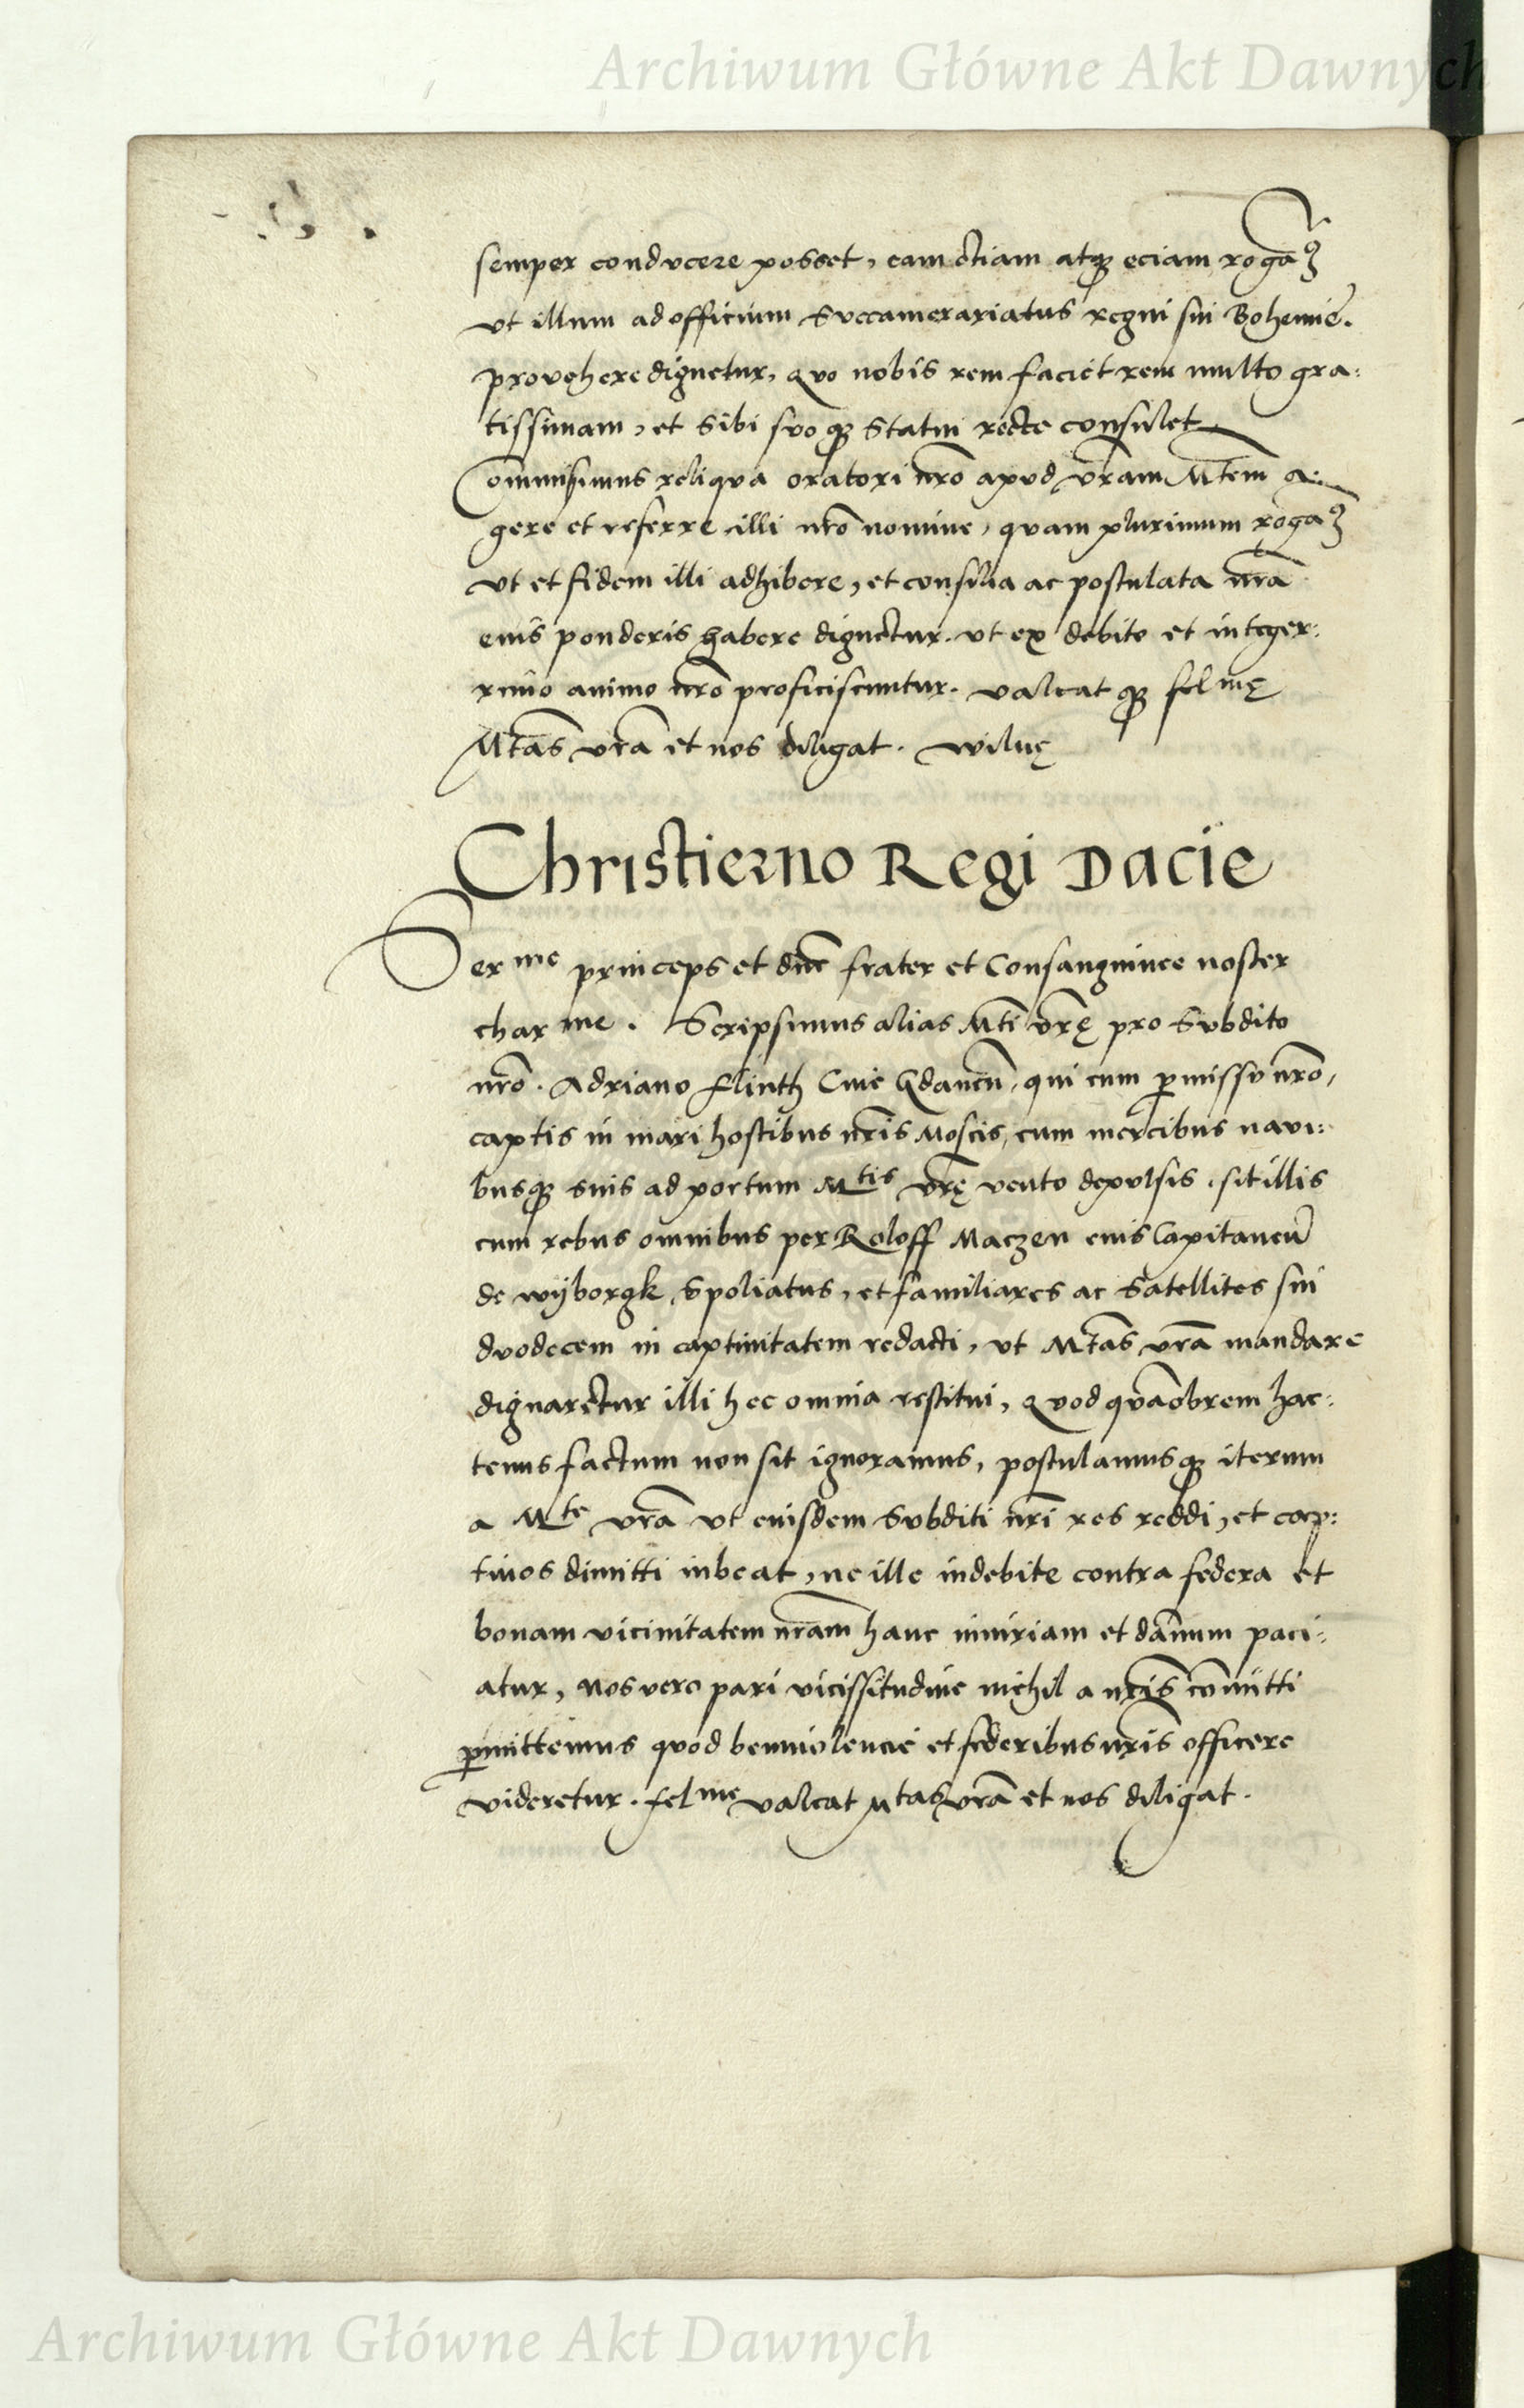 Archiwum Główne Akt Dawnych
semper conducere posset, eam etiam atq eciam rogaꝫ
ut illum ad officium Succamerariatus regni sui Bohemie.
provehere dignetur, quo nobis rem faciet rem multo gra:
tissimam, et sibi suoq statui recte consulet
Commisimus reliqua oratori nr̄o apud vr̄am Mtēm a:
gere et referre illi nr̄o nomine, quam plurimum rogaꝫ
ut et fidem illi adhibere, et consilia ac postulata nr̄a
euis ponderis habere dignetur. ut ex debito et integer:
rimo animo nr̄o proficiscuntur. valeat q fel mę
Mtās vr̄a et nos diligat. Wilnę
Christierno Regi Dacie
Ser me princeps et dn̄e frater et Consanguinee noster
char me. Scripsimus alias Mti vr̄ę pro Subdito
nr̄o. Adriano Flinth Cive Gdanen̄, qui cum p̱missu nr̄o,
captis in mari hostibus nr̄is Moscis, cum mercibus navi:
busq suis ad portum Mtis vr̄ę vento depulsis. sit illis
cum rebus omnibus per Roloff Maczen euis Capitaneū
de wyborgk, Spoliatus, et familiares ac Satellites sui
duodecem in captivitatem redacti, ut Mtās vr̄a mandare
dignaretur illi hec omnia restitui, quod quāobrem hac:
tenus factum non sit ignoramus, postulamusq iterum
a Mte vr̄a ut eiusdem Subditi nr̄i res reddi, et cap:
tivos dimitti iubeat, ne ille indebite contra federa et
bonam vicinitatem nr̄am hanc iniuriam et dānum paci:
atur, Nos vero pari vicissitudine nichil a nr̄is cōmitti
p̱mittemus quod benivolencie et federibus nr̄is officere
videretur. fel me valeat Mtas vr̄a et nos diligat.
Archiwum Główne Akt Dawnych